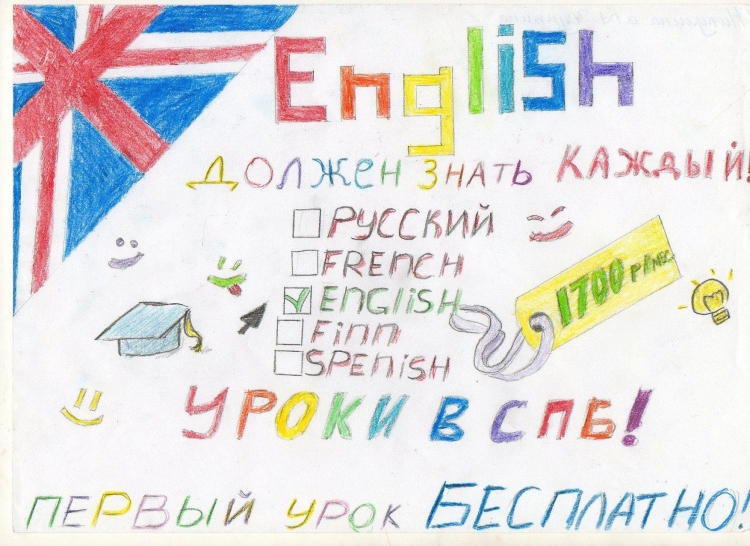 English
ДОЛЖЕН ЗНАТЬ КАЖДЫЙ!
РУССКИЙ
FRENCH
ENGLISH
FINN
SPENISH
1700 р/мес
УРОКИ В СПБ!
ПЕРВЫЙ УРОК БЕСПЛАТНО!